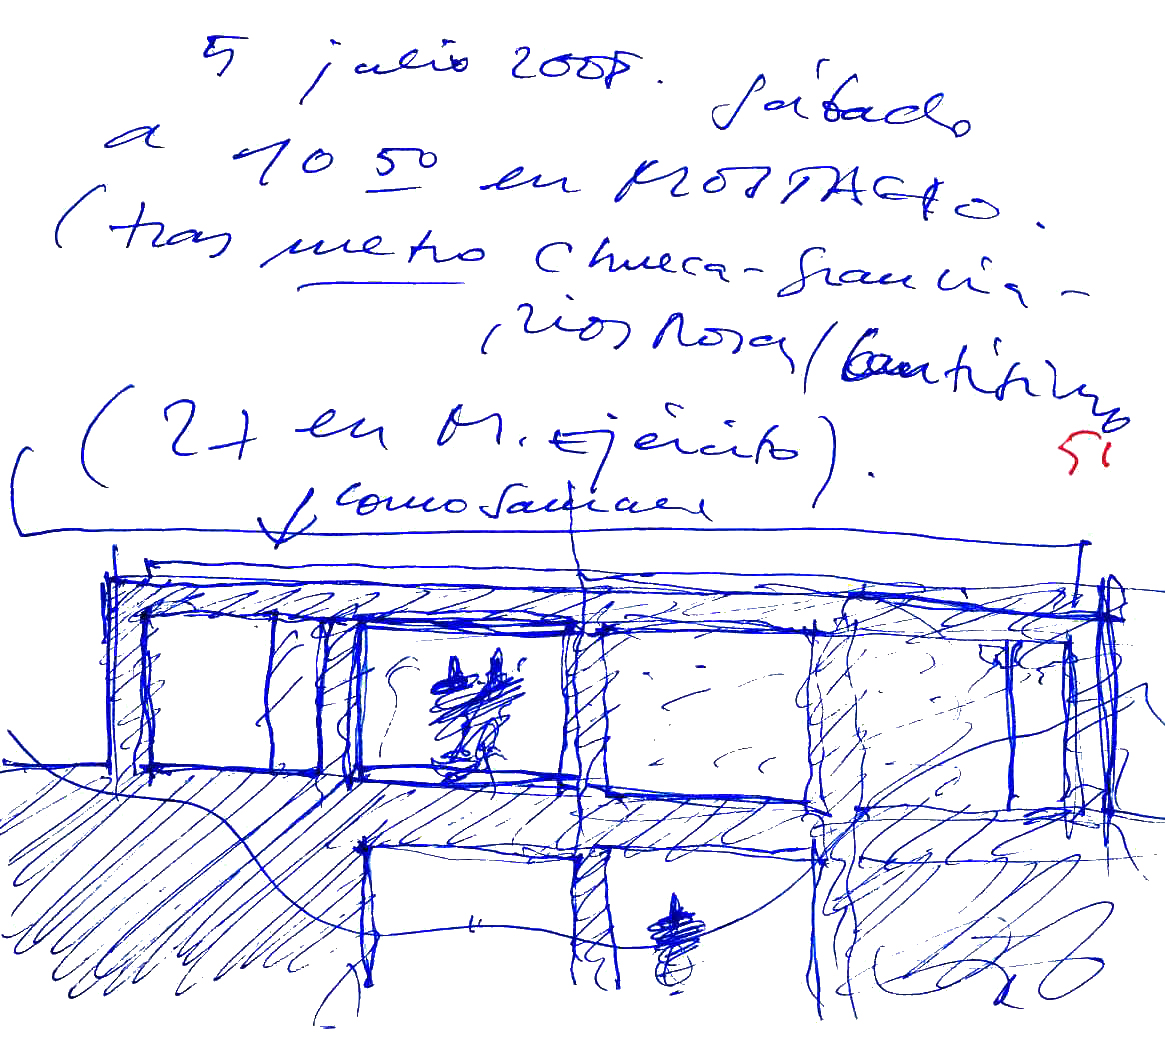 5 julio 2008. sábado
a 10 50 en MOSTACHO.
(tras metro Chueca - Gran Vía -
Ríos Rosas /
(2+ en M. Ejército).
51
como